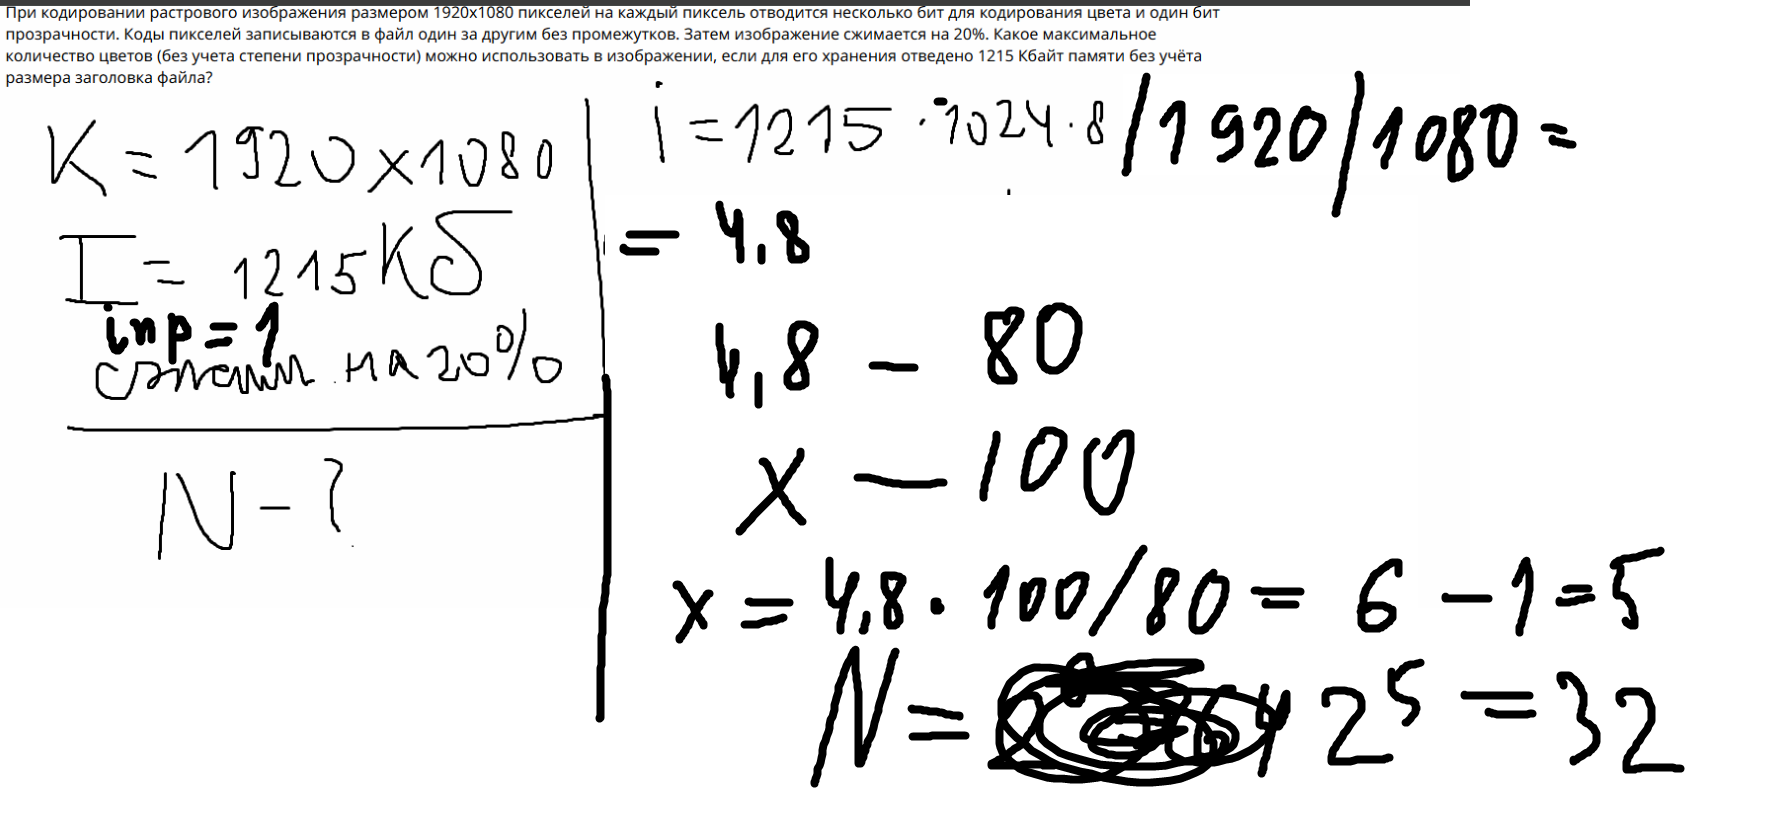 При кодировании растрового изображения размером 1920x1080 пикселей на каждый пиксель отводится несколько бит для кодирования цвета и один бит
прозрачности. Коды пикселей записываются в файл один за другим без промежутков. Затем изображение сжимается на 20%. Какое максимальное
количество цветов (без учета степени прозрачности) можно использовать в изображении, если для его хранения отведено 1215 Кбайт памяти без учёта
размера заголовка файла?
K = 1920x1080
I = 1215Кб
iпр = 1
сжали на 20%
N - ?
i = 1215 · 1024 · 8 / 1920 / 1080 =
= 4,8
4,8 - 80
x - 100
x = 4,8 · 100 / 80 = 6 - 1 = 5
N = 2⁵ = 32